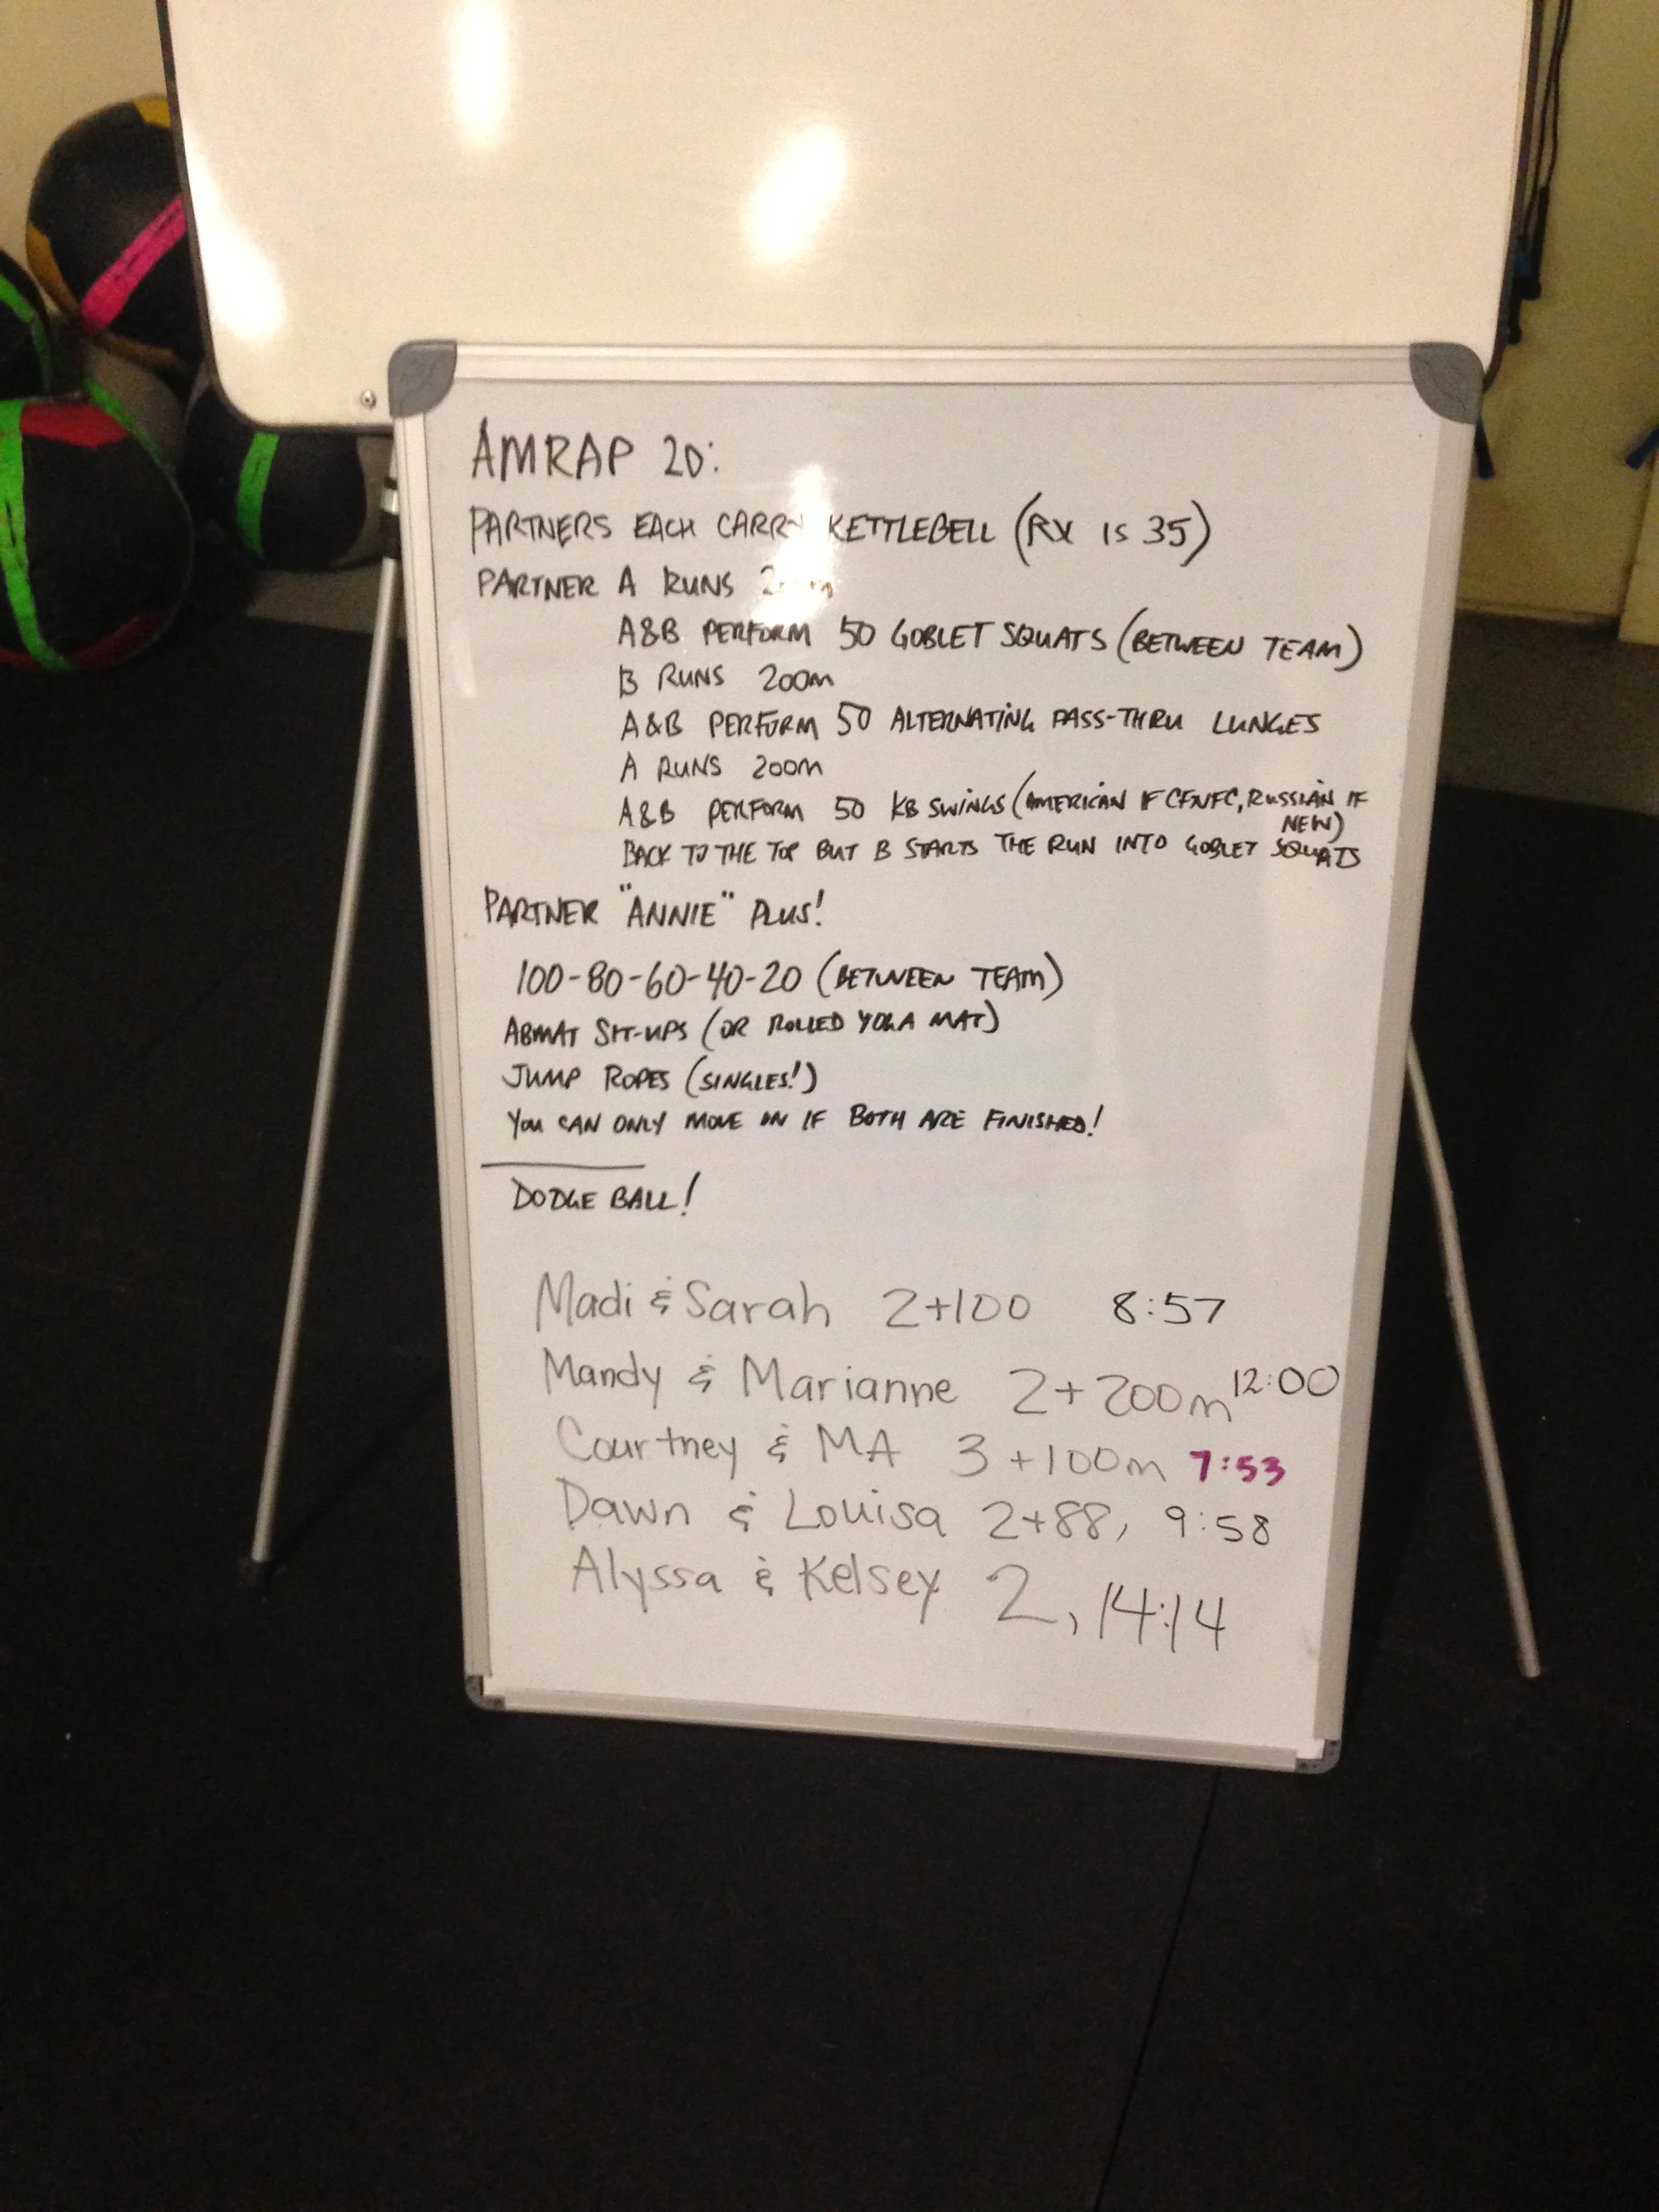 AMRAP 20:
PARTNERS EACH CARRY KETTLEBELL (RX IS 35)
PARTNER A RUNS
A&B PERFORM 50 GOBLET SQUATS (BETWEEN TEAM)
B RUNS 200m
A&B PERFORM 50 ALTERNATING PASS-THRU LUNGES
A RUNS 200m
A&B PERFORM 50 KB SWINGS (AMERICAN IF CFNFC, RUSSIAN IF
NEW)
BACK TO THE TOP BUT B STARTS THE RUN INTO GOBLET SQUATS
PARTNER "ANNIE" PLUS!
100-80-60-40-20 (BETWEEN TEAM)
ABMAT SIT-UPS (OR ROLLED YOGA MAT)
JUMP ROPES (SINGLES!)
YOU CAN ONLY MOVE ON IF BOTH ARE FINISHED!
DODGE BALL!
Madi & Sarah 2+100 8:57
Mandy & Marianne 2+200m 12:00
Courtney & MA 3+100m 7:53
Dawn & Louisa 2+88, 9:58
Alyssa & Kelsey 2, 14:14